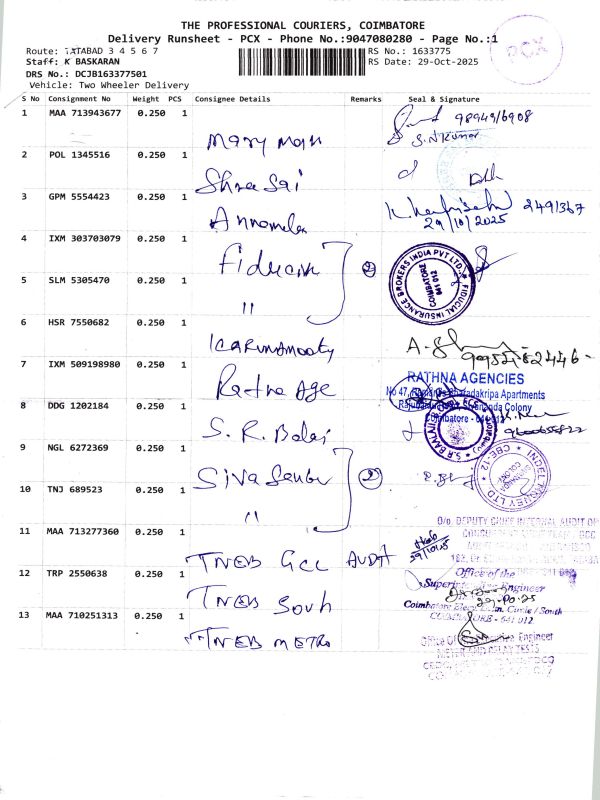 THE PROFESSIONAL COURIERS, COIMBATORE
Delivery Runsheet - PCX - Phone No.:9047080280 - Page No.:1
PCX
Route: TATABAD 3 4 5 6 7
RS No.: 1633775
Staff: K BASKARAN
RS Date: 29-Oct-2025
DRS No.: DCJB163377501
Vehicle: Two Wheeler Delivery
S No Consignment No Weight PCS Consignee Details Remarks Seal & Signature
1 MAA 713943677 0.250 1 Mary Mom 9894916908
S.N Kumar
2 POL 1345516 0.250 1 Shree Sai
3 GPM 5554423 0.250 1 Annamalai 2491367
29/10/2025
4 IXM 303703079 0.250 1 Fiducial 2
FIDUCIAL INSURANCE BROKERS INDIA PVT LTD. COIMBATORE 641 012
5 SLM 5305470 0.250 1 "
6 HSR 7550682 0.250 1 Karunamooty
99952-82446-
7 IXM 509198980 0.250 1 Ratna Age
RATHNA AGENCIES
No 47, Apartments
Colony
Coimbatore - 641 012
8 DDG 1202184 0.250 1 S. R. Balaji
9 NGL 6272369 0.250 1 Siva Sankr 2
CBE-12
10 TNJ 689523 0.250 1 "
O/o. DEPUTY CHIEF INTERNAL AUDIT OF
11 MAA 713277360 0.250 1 TNEB GCC AUDIT
29/10/25
12 TRP 2550638 0.250 1 TNEB South
Office of the
Superintending Engineer
Coimbatore Elec. Dn. Circle / South
COIMBATORE - 641 012
13 MAA 710251313 0.250 1 TNEB METRO
Office Of Executive Engineer
METER AND RELAY TESTS